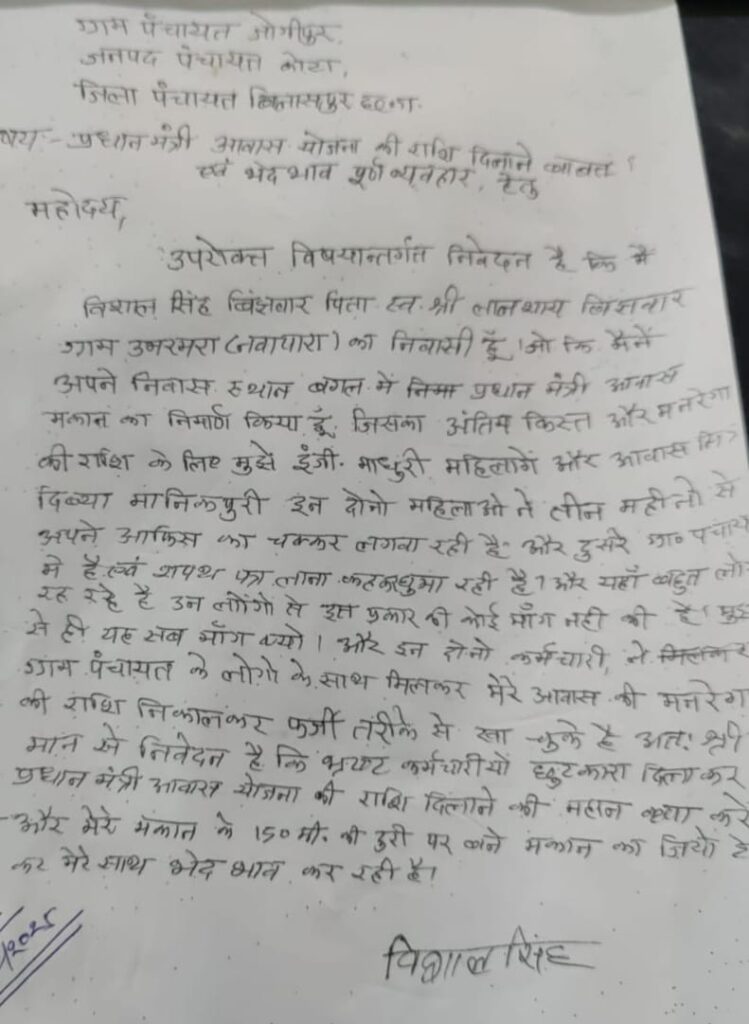 ग्राम पंचायत जोगीपुर,
जनपद पंचायत कोटा,
जिला पंचायत बिलासपुर छ०ग०
षय:- प्रधान मंत्री आवास योजना की राशि दिलाने बाबत।
एवं भेद भाव पूर्ण व्यवहार, हेतु
महोदय,
उपरोक्त विषयान्तर्गत निवेदन है कि मैं
विशाल सिंह बिंझवार पिता स्व. श्री लालसाय बिंझवार
ग्राम उमरमरा (नवापारा) का निवासी हूँ। जो कि मैनें
अपने निवास स्थान बगल में प्रधान मंत्री आवास
मकान का निर्माण किया हूँ, जिसका अंतिम किस्त और मनरेगा
की राशि के लिए मुझे इंजी. माधुरी और आवास मि
दिव्या मानिकपुरी इन दोनो महिलाओ ने तीन महीनो से
अपने आफिस का चक्कर लगवा रही है। और दुसरे ग्रा० पंचाय
मे है एवं शपथ पत्र लाना कहकर घुमा रही है। और यहाँ बहुत लो
रह रहे है उन लोंगो से इस प्रकार की कोई माँग नही की है। मुझ
से ही यह सब माँग क्यो। और इन दोनो कर्मचारी, ने मिलकर
ग्राम पंचायत के लोगो के साथ मिलकर मेरे आवास की मनरेग
की राशि निकालकर फर्जी तरीके से खा चुके है अत: श्री
मान से निवेदन है कि भ्रष्ट कर्मचारीयों छुटकारा दिलाकर
प्रधान मंत्री आवास योजना की राशि दिलाने की महान कृपा करे
और मेरे मकान के 150 मी. की दुरी पर बने मकान का जियो टै
कर मेरे साथ भेद भाव कर रही है।
विशाल सिंह
/2025